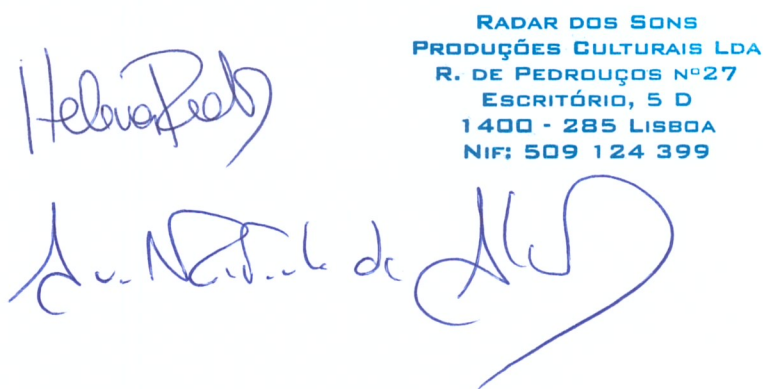 RADAR DOS SONS
PRODUÇÕES CULTURAIS LDA
R. DE PEDROUÇOS Nº27
ESCRITÓRIO, 5 D
1400 - 285 LISBOA
NIF: 509 124 399
Helena
de